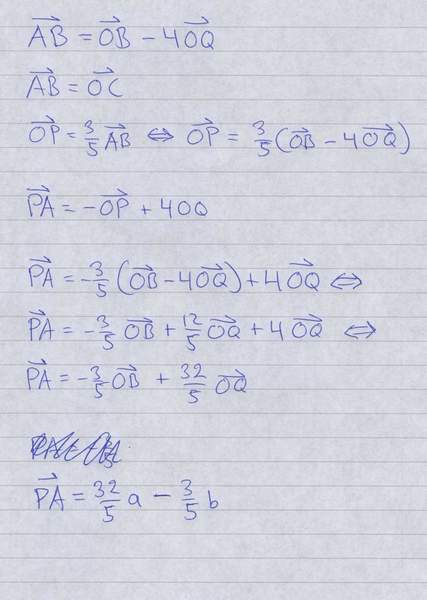 AB⃗ = OB⃗ - 4OQ⃗
AB⃗ = OC⃗
OP⃗ = 3/5 AB⃗ ⇔ OP⃗ = 3/5 (OB⃗ - 4OQ⃗)
PA⃗ = -OP⃗ + 4OQ
PA⃗ = -3/5 (OB⃗ - 4OQ⃗) + 4OQ⃗ ⇔
PA⃗ = -3/5 OB⃗ + 12/5 OQ⃗ + 4 OQ⃗ ⇔
PA⃗ = -3/5 OB⃗ + 32/5 OQ⃗
PA⃗ = 32/5 a - 3/5 b